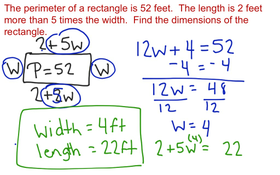 The perimeter of a rectangle is 52 feet. The length is 2 feet
more than 5 times the width. Find the dimensions of the
rectangle.
2+5w
w P=52 w
2+5w
12w + 4 = 52
-4 = -4
12w = 48
12 12
w = 4
(4)
2+5w = 22
width = 4ft
length = 22ft